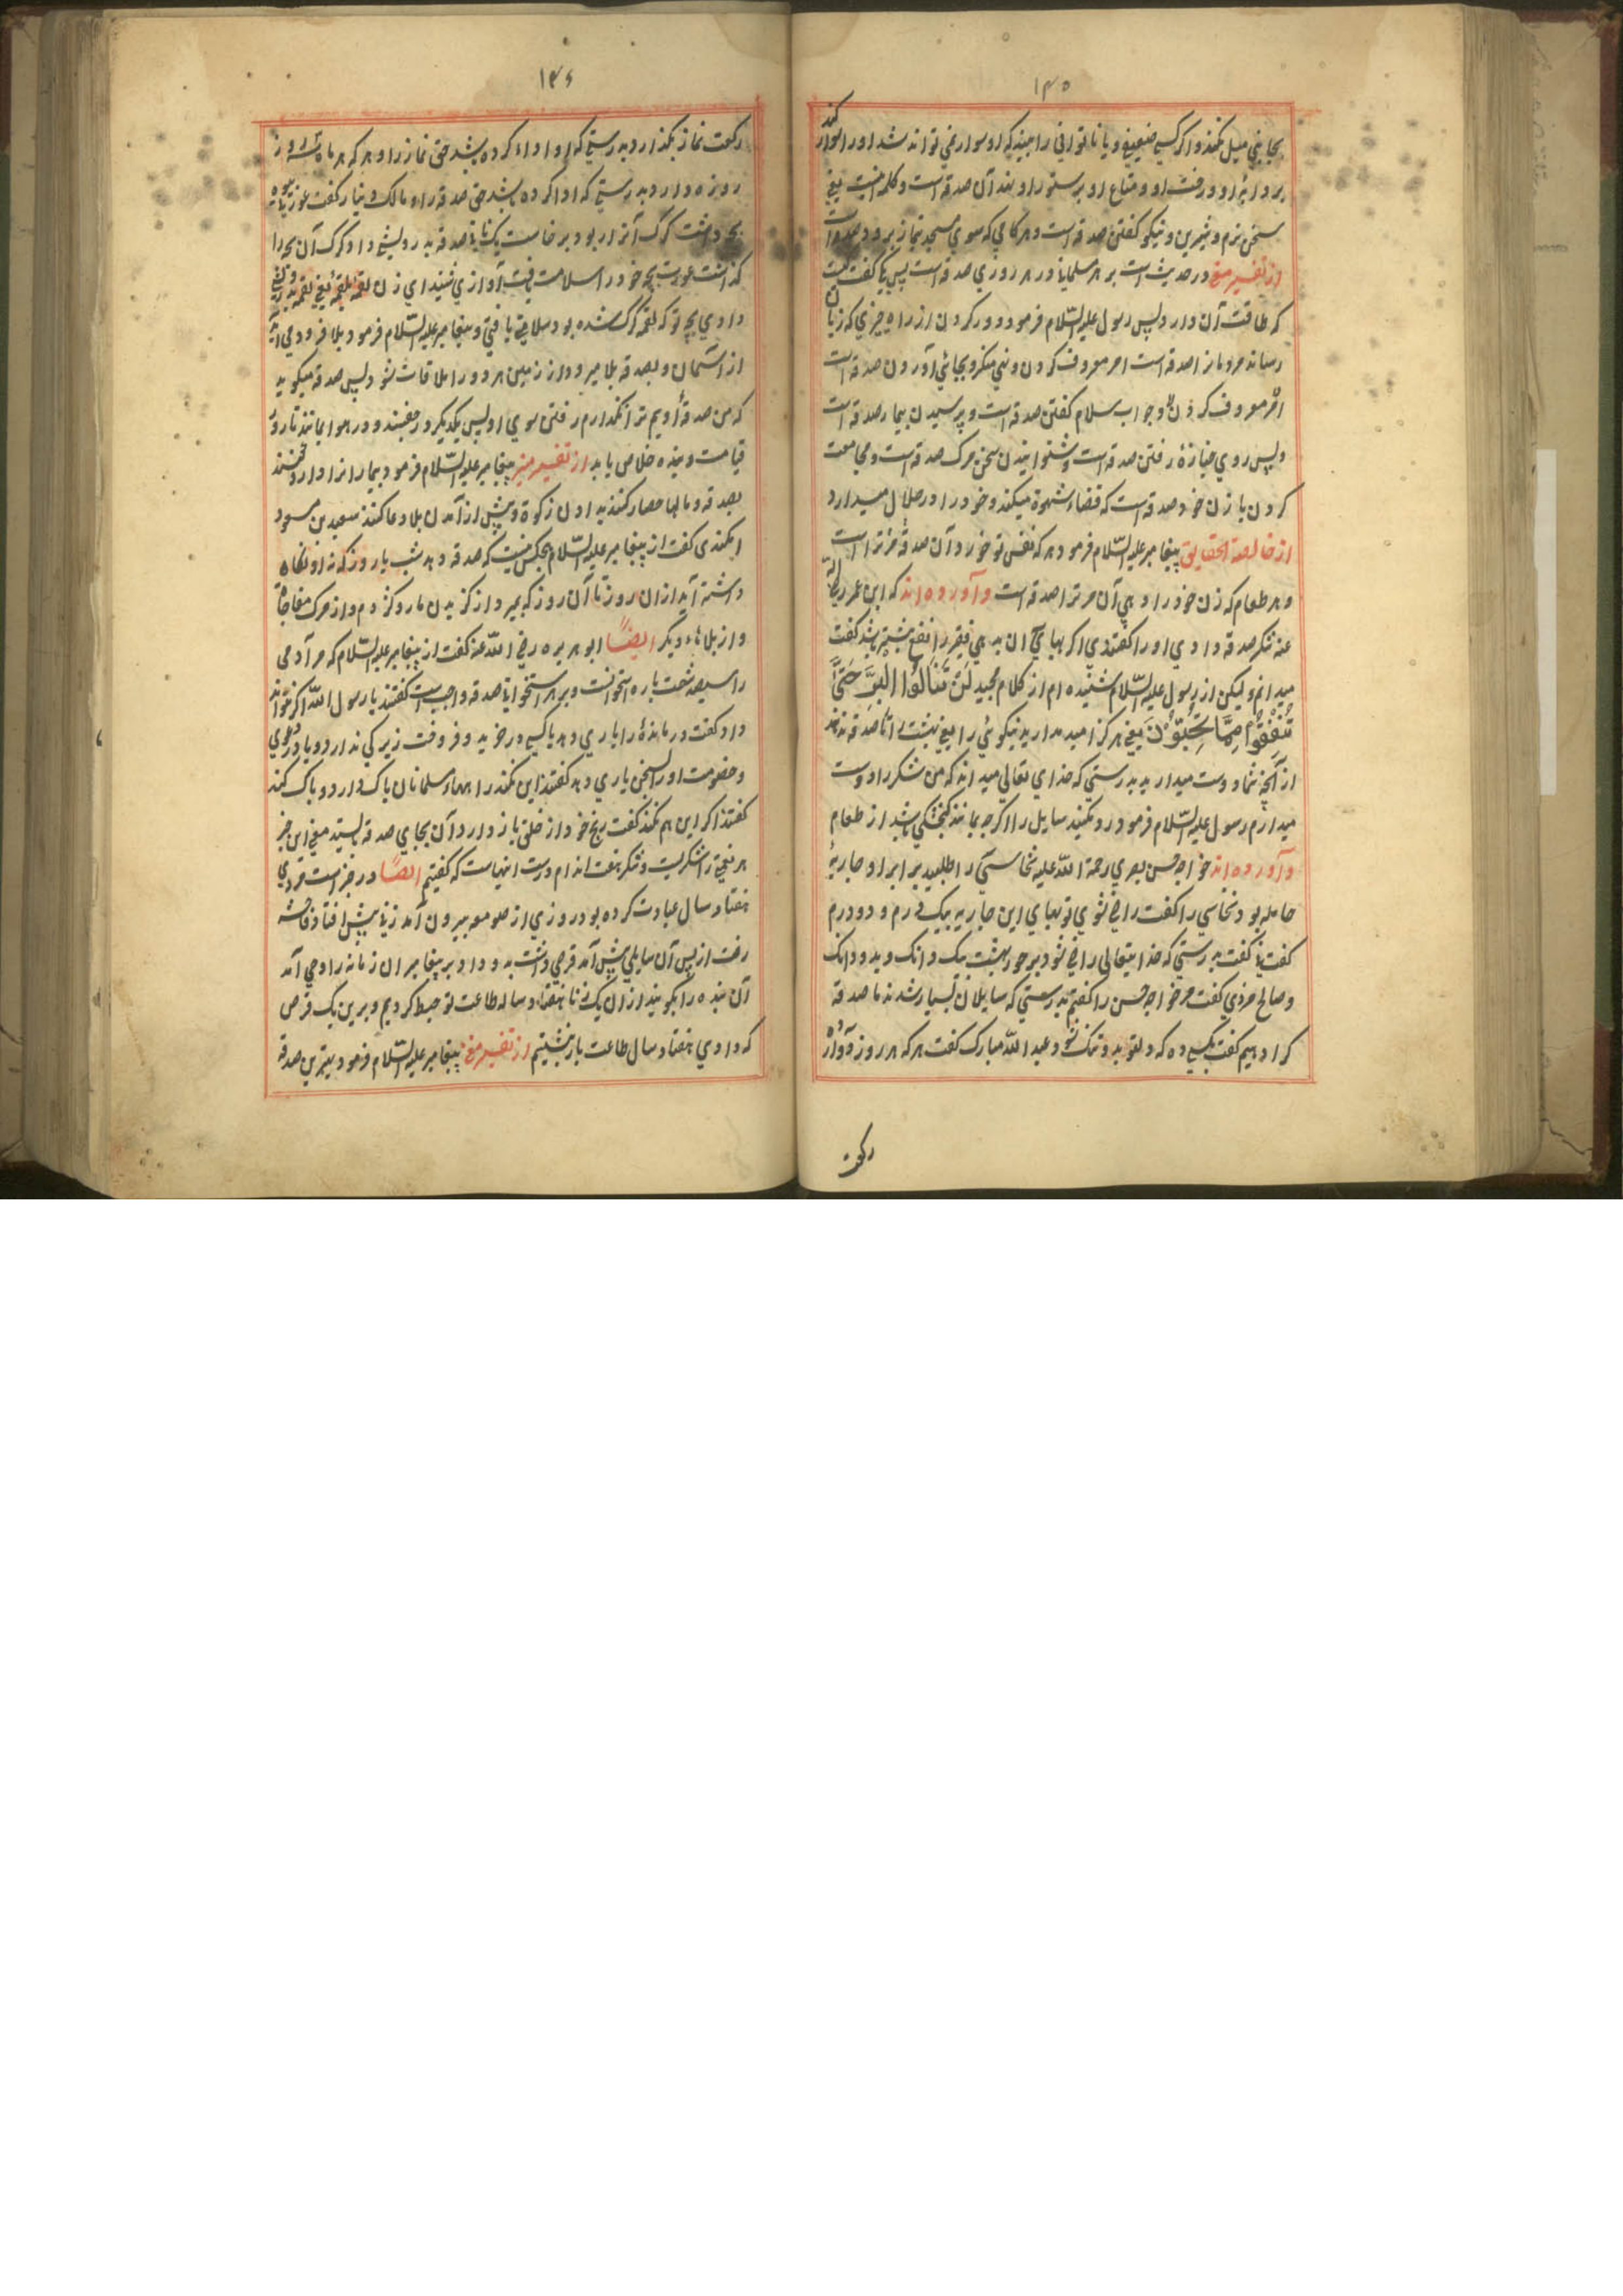 ۱۴۵
بجایی میل نکند و اگر کسی ضعیفی و یا ناتوانی را بیند که او سوار نمی تواند شد او را سوار کند
بر دابۀ او و رفت او و متاع او بر ستور او نهد آن صدقه است و کلمه است یعنی
سخن نرم و شیرین و نیکو گفتن صدقه است و هر گامی که سوی مسجد بنماز برود صدقه است
از تفسیر مغنی در حدیث است بر هر مسلمانی در هر روزی صدقه است پس یکی گفت کیست
که طاقت آن دارد پس رسول علیه السّلام فرمود دور کردن از راه چیزی که زیان
رساند مردمان را صدقه است امر معروف کردن و نهی منکر و بجای آوردن صدقه است
امر معروف کردن و جواب سلام گفتن صدقه است و پرسیدن بیمار صدقه است
و پس روی جنازۀ رفتن صدقه است و شنوانیدن سخن مر کر صدقه است و مجامعت
کردن با زن خود صدقه است که قضاء شهوة میکند و خود را در حلال میدارد
از خالصة الحقایق پیغامبر علیه السّلام فرمود هر که نفس تو خورد آن صدقه مر ترا است
و هر طعام که زن خود را دهی آن مر ترا صدقه است و آورده اند که ابن عمر رضی الله
عنه شکر صدقه دادی او را گفتندی اگر بهای آن بدهی فقیر را نفع بیشتر باشد گفت
میدانم و لیکن از رسول علیه السّلام شنیده ام از کلام مجید لَنْ تَنَالُوا الْبِرَّ حَتَّىٰ
تُنْفِقُوا مِمَّا تُحِبُّونَ یعنی هرگز امید مدارید نیکوئی را یعنی بهشت را تا صدقه ندهند
از آنچه شما دوست میدارید بدرستی که خدای تعالی میداند که من شکر را دوست
میدارم رسول علیه السّلام فرمود رد مکنید سایل را اگرچه بمانند گنجشکی باشد از طعام
و آورده اند خواجه حسن بصری رحمة الله علیه نخاسی را طلبید برابر او جاریۀ
حامله بود نخاسی را گفت راضی شوی تو بهای این جاریه بیک درم و دو درم
گفت نی گفت بدرستی که خدایتعالی راضی شود بر حور بهشت بیک دانگ و بدو دانگ
و صالح مرذی گفت مر خواجه حسن را گفتم بدرستی که سایلان بسیار شدند ما صدقه
کرا دهیم گفت بکسی ده که دلتو بدو و عبد الله مبارک گفت هر که هر روز دوازده
رکعت
۱۴۶
رکعت نماز بگذارد بدرستی که او اداء کرده باشد حق نماز را و هر که هر ماه سه روز
روزه دارد بدرستی که ادا کرده باشد حق صدقه را و مالک دینار گفت عورتی با بیوه
بچه داشت گرگ آنرا ربود برخاست یک نانی صدقه بدرویشی داد گرگ آن بچه را
گذاشت عورت بچه خود را سلامت یافت آوازی شنید ای زن لقمه بلقمه یعنی لقمه بدرویش
دادی بچه تو که لقمه گرگ شده بود سلامتی یافتی و پیغامبر علیه السّلام فرمود بلا فرود می آید
از آسمان و بصدقه بلا میرود از زمین هر دو را ملاقات شود پس صدقه میگوید
که من صدقه آدمیم ترا نگذارم رفتن سوی او پس یکدیگر در جفتند و در هوا بمانند تا روز
قیامت و بنده خلاص یابد از تفسیر منیر پیغامبر علیه السّلام فرمود بیمار انرا دارو کنند
بصدقه و مالها حصار کنند بدادن زکوة و پیش از آمدن بلا دعا کنند سعید بن مسعود
الکندی گفت از پیغامبر علیه السّلام هیچکس نیست که صدقه دهد شب یا روز که نه او نگاه
داشته آید از ان روز تا آن روز که بمیرد از گزیدن مار و کژدم و از مرگ مفاجاة
و از بلاهاء دیگر ایضًا ابو هریره رضی الله عنه گفت از پیغامبر علیه السّلام که مر آدمی
را سیصد شصت پاره استخوانست و بر هر استخوانی صدقه واجب است گفتند یا رسول الله اگر نتواند
داد گفت درماندۀ را یاری دهد یا کسی در خرید و فروخت زیرکی ندارد و یا در دعوی
و خصومت او را بسخن یاری دهد گفتند این نکند راهها مسلمانان پاک دارد و پاک کند
گفتند اگر این هم نکند گفت رنج خود از خلق باز دارد آن بجای صدقه بایستد معنی این خبر
هر نعمتی را شکریست و شکر هفت اندام درست اینهاست که گفتیم ایضًا در خبر است مردی
هفتاد سال عبادت کرده بود روزی از صومعه بیرون آمد زنی پیش افتاد فاحشه
رفت از پس آن سایلی پیش آمد قرصی داشت بدو داد بر پیغامبر ان زمانه را وحی آمد
آن بنده را بگویند از ان یک زنا هفتاد ساله طاعت تو حبط کردیم و برین یک قرص
که دادی هفتاد سال طاعت باز نبشتیم از تفسیر مغنی پیغامبر علیه السّلام فرمود بهترین صدقه